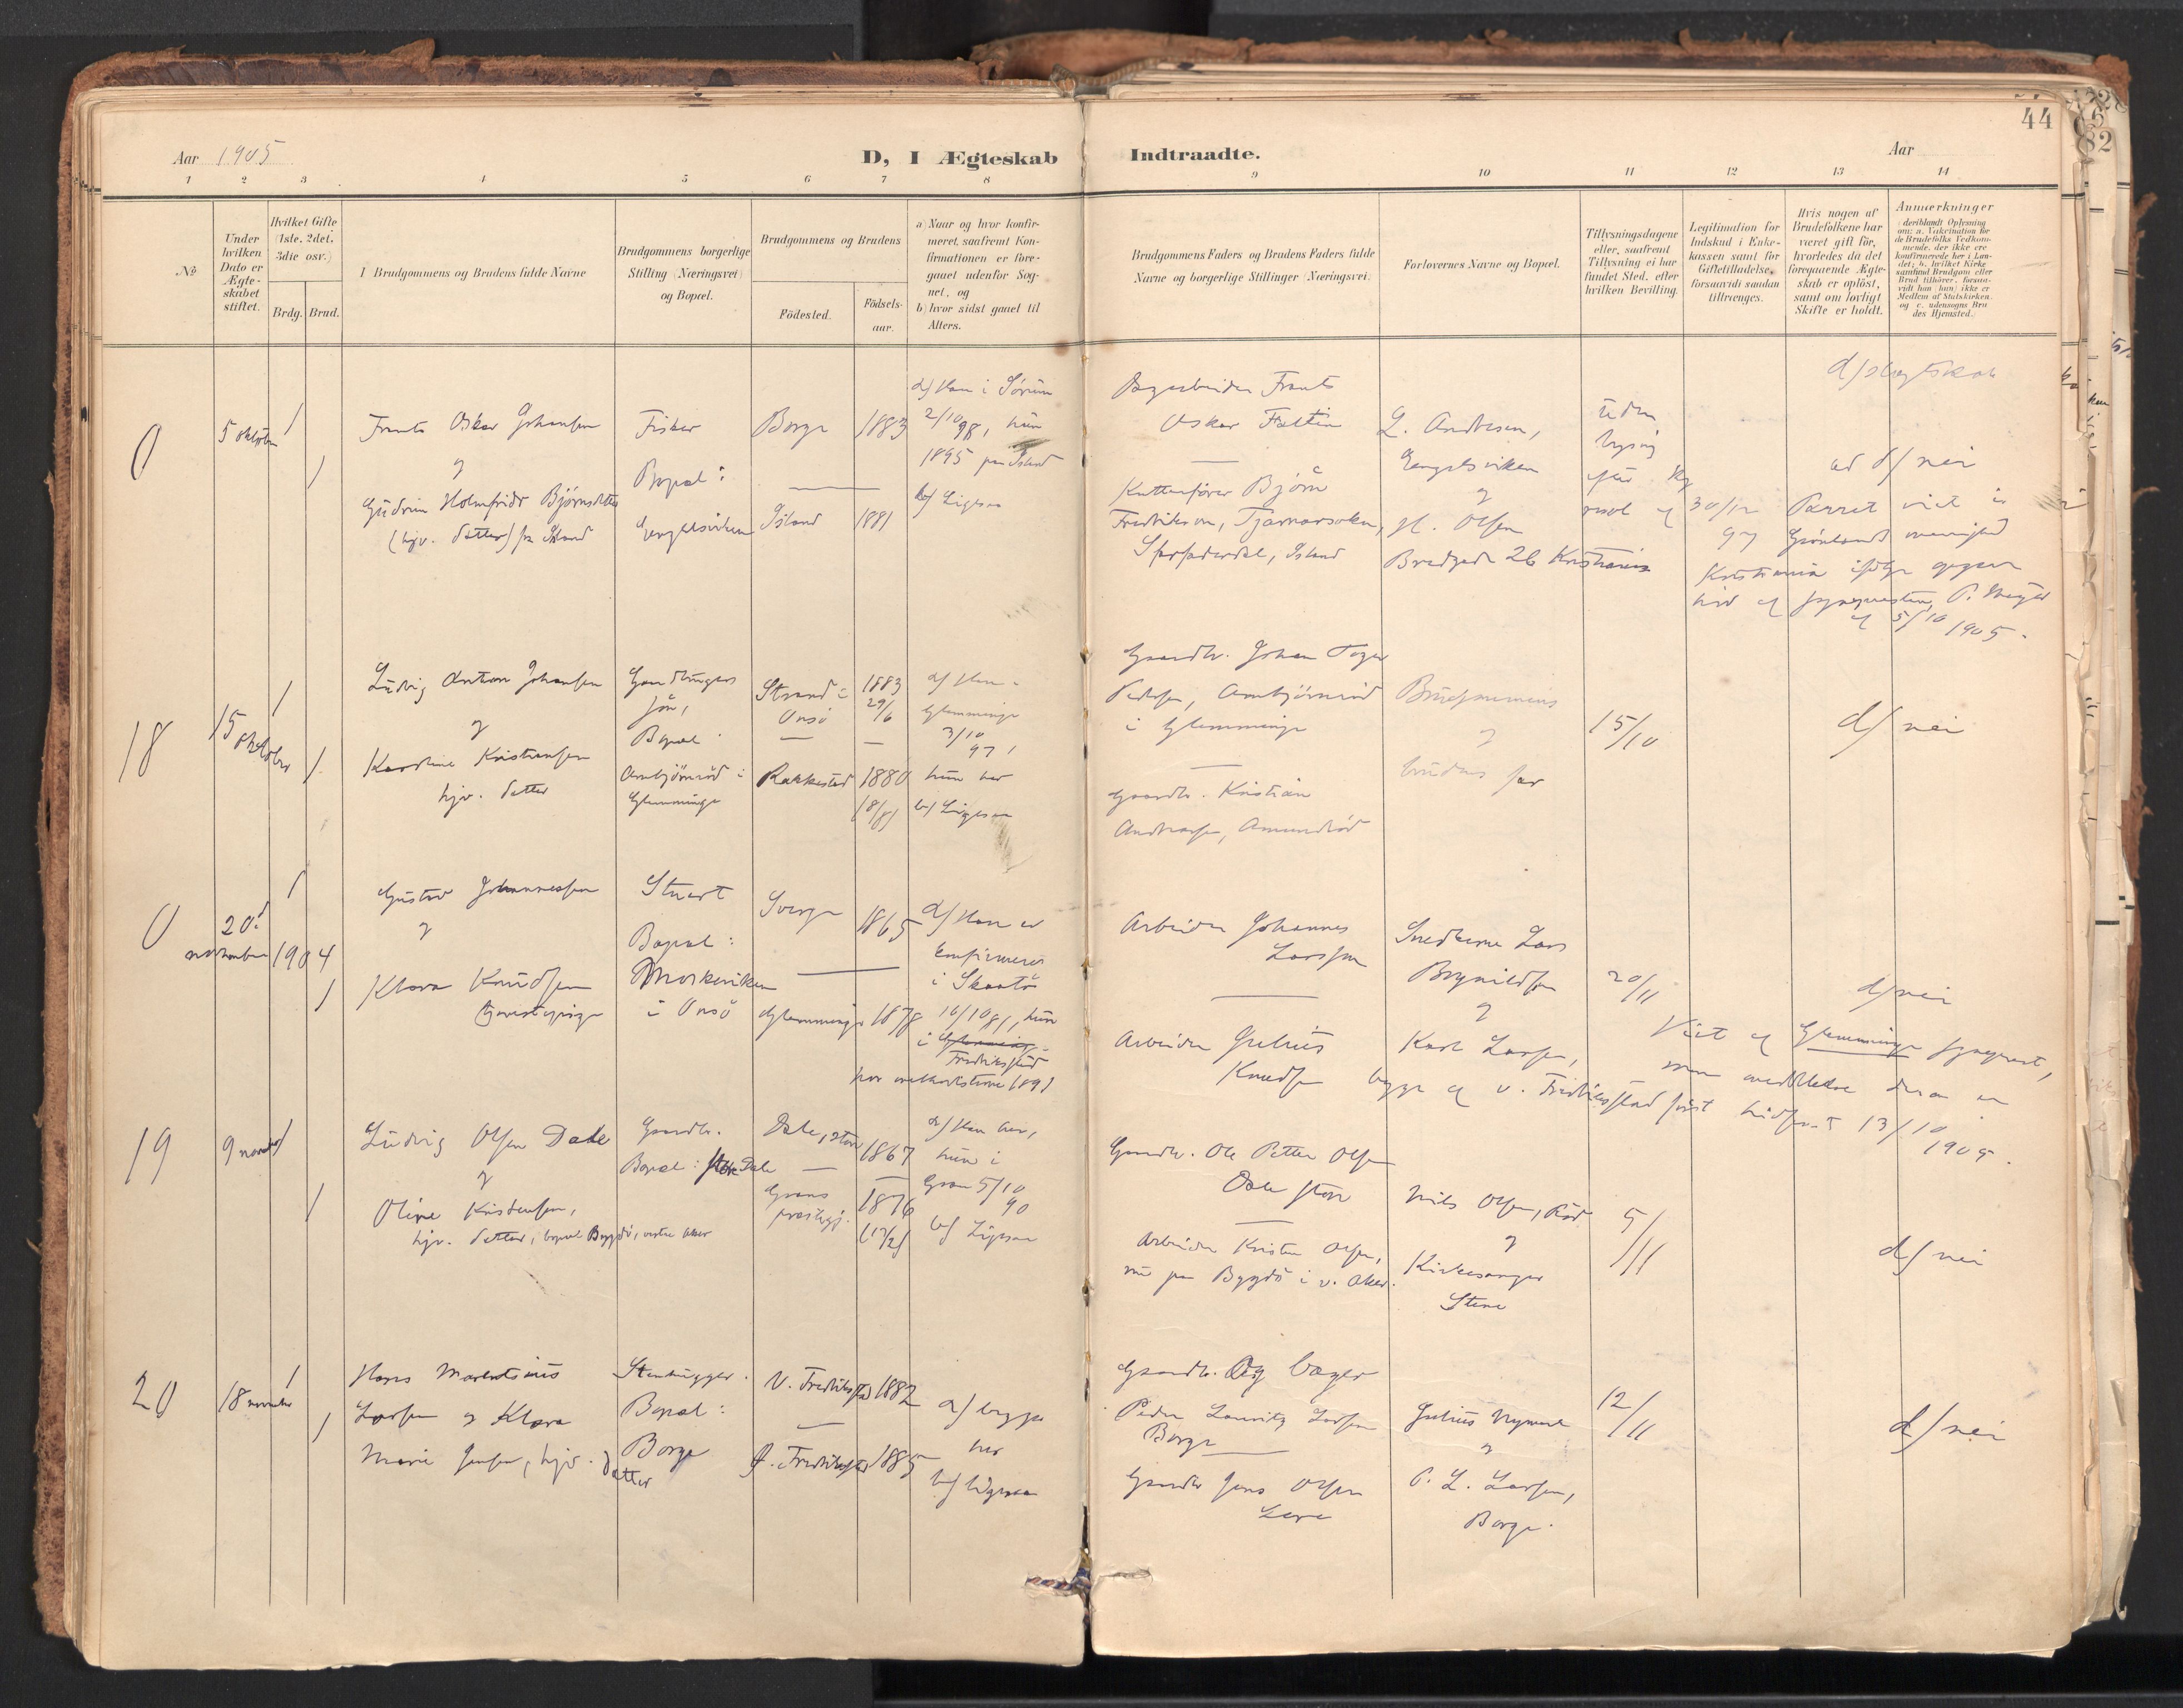 44
Aar 1905
D, I Ægteskab Indtraadte.
Aar
1 2 3 4 5 6 7 8 9 10 11 12 13 14
№
Under hvilken Dato er Ægteskabet stiftet.
Hvilket Gifte (1ste, 2det, 3die osv.)
Brdg. Brud.
Brudgommens og Brudens fulde Navne
Brudgommens borgerlige Stilling (Næringsvei) og Bopæl.
Brudgommens og Brudens
Födested.
Födselsaar.
a) Naar og hvor konfirmeret, saafremt Konfirmationen er foregaaet udenfor Sognet, og
b) hvor sidst gaaet til Alters.
Brudgommens Faders og Brudens Faders fulde Navne og borgerlige Stillinger (Næringsvei).
Forlovernes Navne og Bopæl.
Tillysningsdagene eller, saafremt Tillysning ei har fundet Sted, efter hvilken Bevilling.
Legitimation for Indskud i Enkekassen samt for Giftetilladelse, forsaavidt saadan tiltrænges.
Hvis nogen af Brudefolkene har været gift för, hvorledes da det foregaaende Ægteskab er oplöst, samt om lovligt Skifte er holdt.
Anmærkninger
(deriblandt Oplysning om: a. Vakcination for de Brudefolks Vedkommende, der ikke ere konfirmerede her i Landet; b. hvilket Kirkesamfund Brudgom eller Brud tilhörer, forsaavidt han (hun) ikke er Medlem af Statskirken, og c. udensogns Brudes Hjemsted.)
0
5 oktober
1
1
Frants Oskar Johansen
og
Gudrun Holmfridr Björnsdatter
(hjv. datter) fra Island
Fisker
Bopæl:
Engelsviken
Borge 1883
Island 1881
a) Han i Sörum
2/10 98, hun
1895 paa Island
b) Ligesaa
Dagarbeider Frants
Oskar
Kutterförer Björn
Fredrikson, Tjarnarsokn,
Island
L. Andresen,
Engelsviken
og
H. Olsen
Bredgade 26 Kristiania
30/12
97
d) slegtskab
ad d) nei
Parret viet i
Grönlands menighed
Kristiania ifölge opgave
hid af sogneprest
af 5/10 1905.
18
15 oktober
1
1
Ludvig Anton Johansen
og
Karoline Kristiansen
hjv. datter
Gaardbrugers
sön,
Bopæl:
Arnbjörnröd i
Glemminge
Strand i
Onsö
Rakkestad
1883
29/6
1880
18/8
a) Han i
Glemminge
3/10
97,
hun her
b) Ligesaa
Gaardbr. Johan
Pedersen, Arnbjörnröd
i Glemminge
Gaardbr. Kristian
Andreassen, Amundröd
Brudgommens
og
brudens far
15/10
d) nei
0
20.
november 1904
1
1
Gustav Johannessen
og
Klara Knudsen
Stuert
Bopæl:
i Onsö
Sverge
Glemminge
1865
1878
a) Han er
konfirmeret
i Skaatö
16/10 81, hun
i Glemminge
Fredriksstad
1891
Arbeider Johannes
Larssen
Arbeider Julius
Knudsen
Snedkerne Lars
Brynildsen
og
Karl Larsen,
begge af v. Fredriksstad
20/11
d) nei
Viet af Glemminge sogneprest,
som meddelelse derom er
först hidsendt 13/10
1905.
19
9 november
1
1
Ludvig Olsen Dale
og
Oline Kristensen,
hjv. datter, bopæl Bygdö, vestre Aker
Gaardbr.
Bopæl: store Dale
Dale, store
Grans
prestegj.
1867
1876
a) Han her,
hun i
Gran 5/10
90
b) Ligesaa
Gaardbr. Ole Petter Olsen
Dale store
Arbeider Kristen Olsen,
nu paa Bygdö i v. Aker.
Nils Olsen, Röd
og
Kirkesanger
Stene
5/11
d) nei
20
18 november
1
1
Hans Marentsius
Larsen og Klara
Marie Jensen, hjv. datter
Stenhugger.
Bopæl:
Borge
V. Fredriksstad 1882
Ö. Fredriksstad 1885
a) begge
her
b) ligesaa
Gaardbr. og bager
Peder Lauritz Larsen
Borge
Gaardbr. Jens Olsen
Lere
Julius Nygaard
og
P. L. Larsen,
Borge.
12/11
d) nei